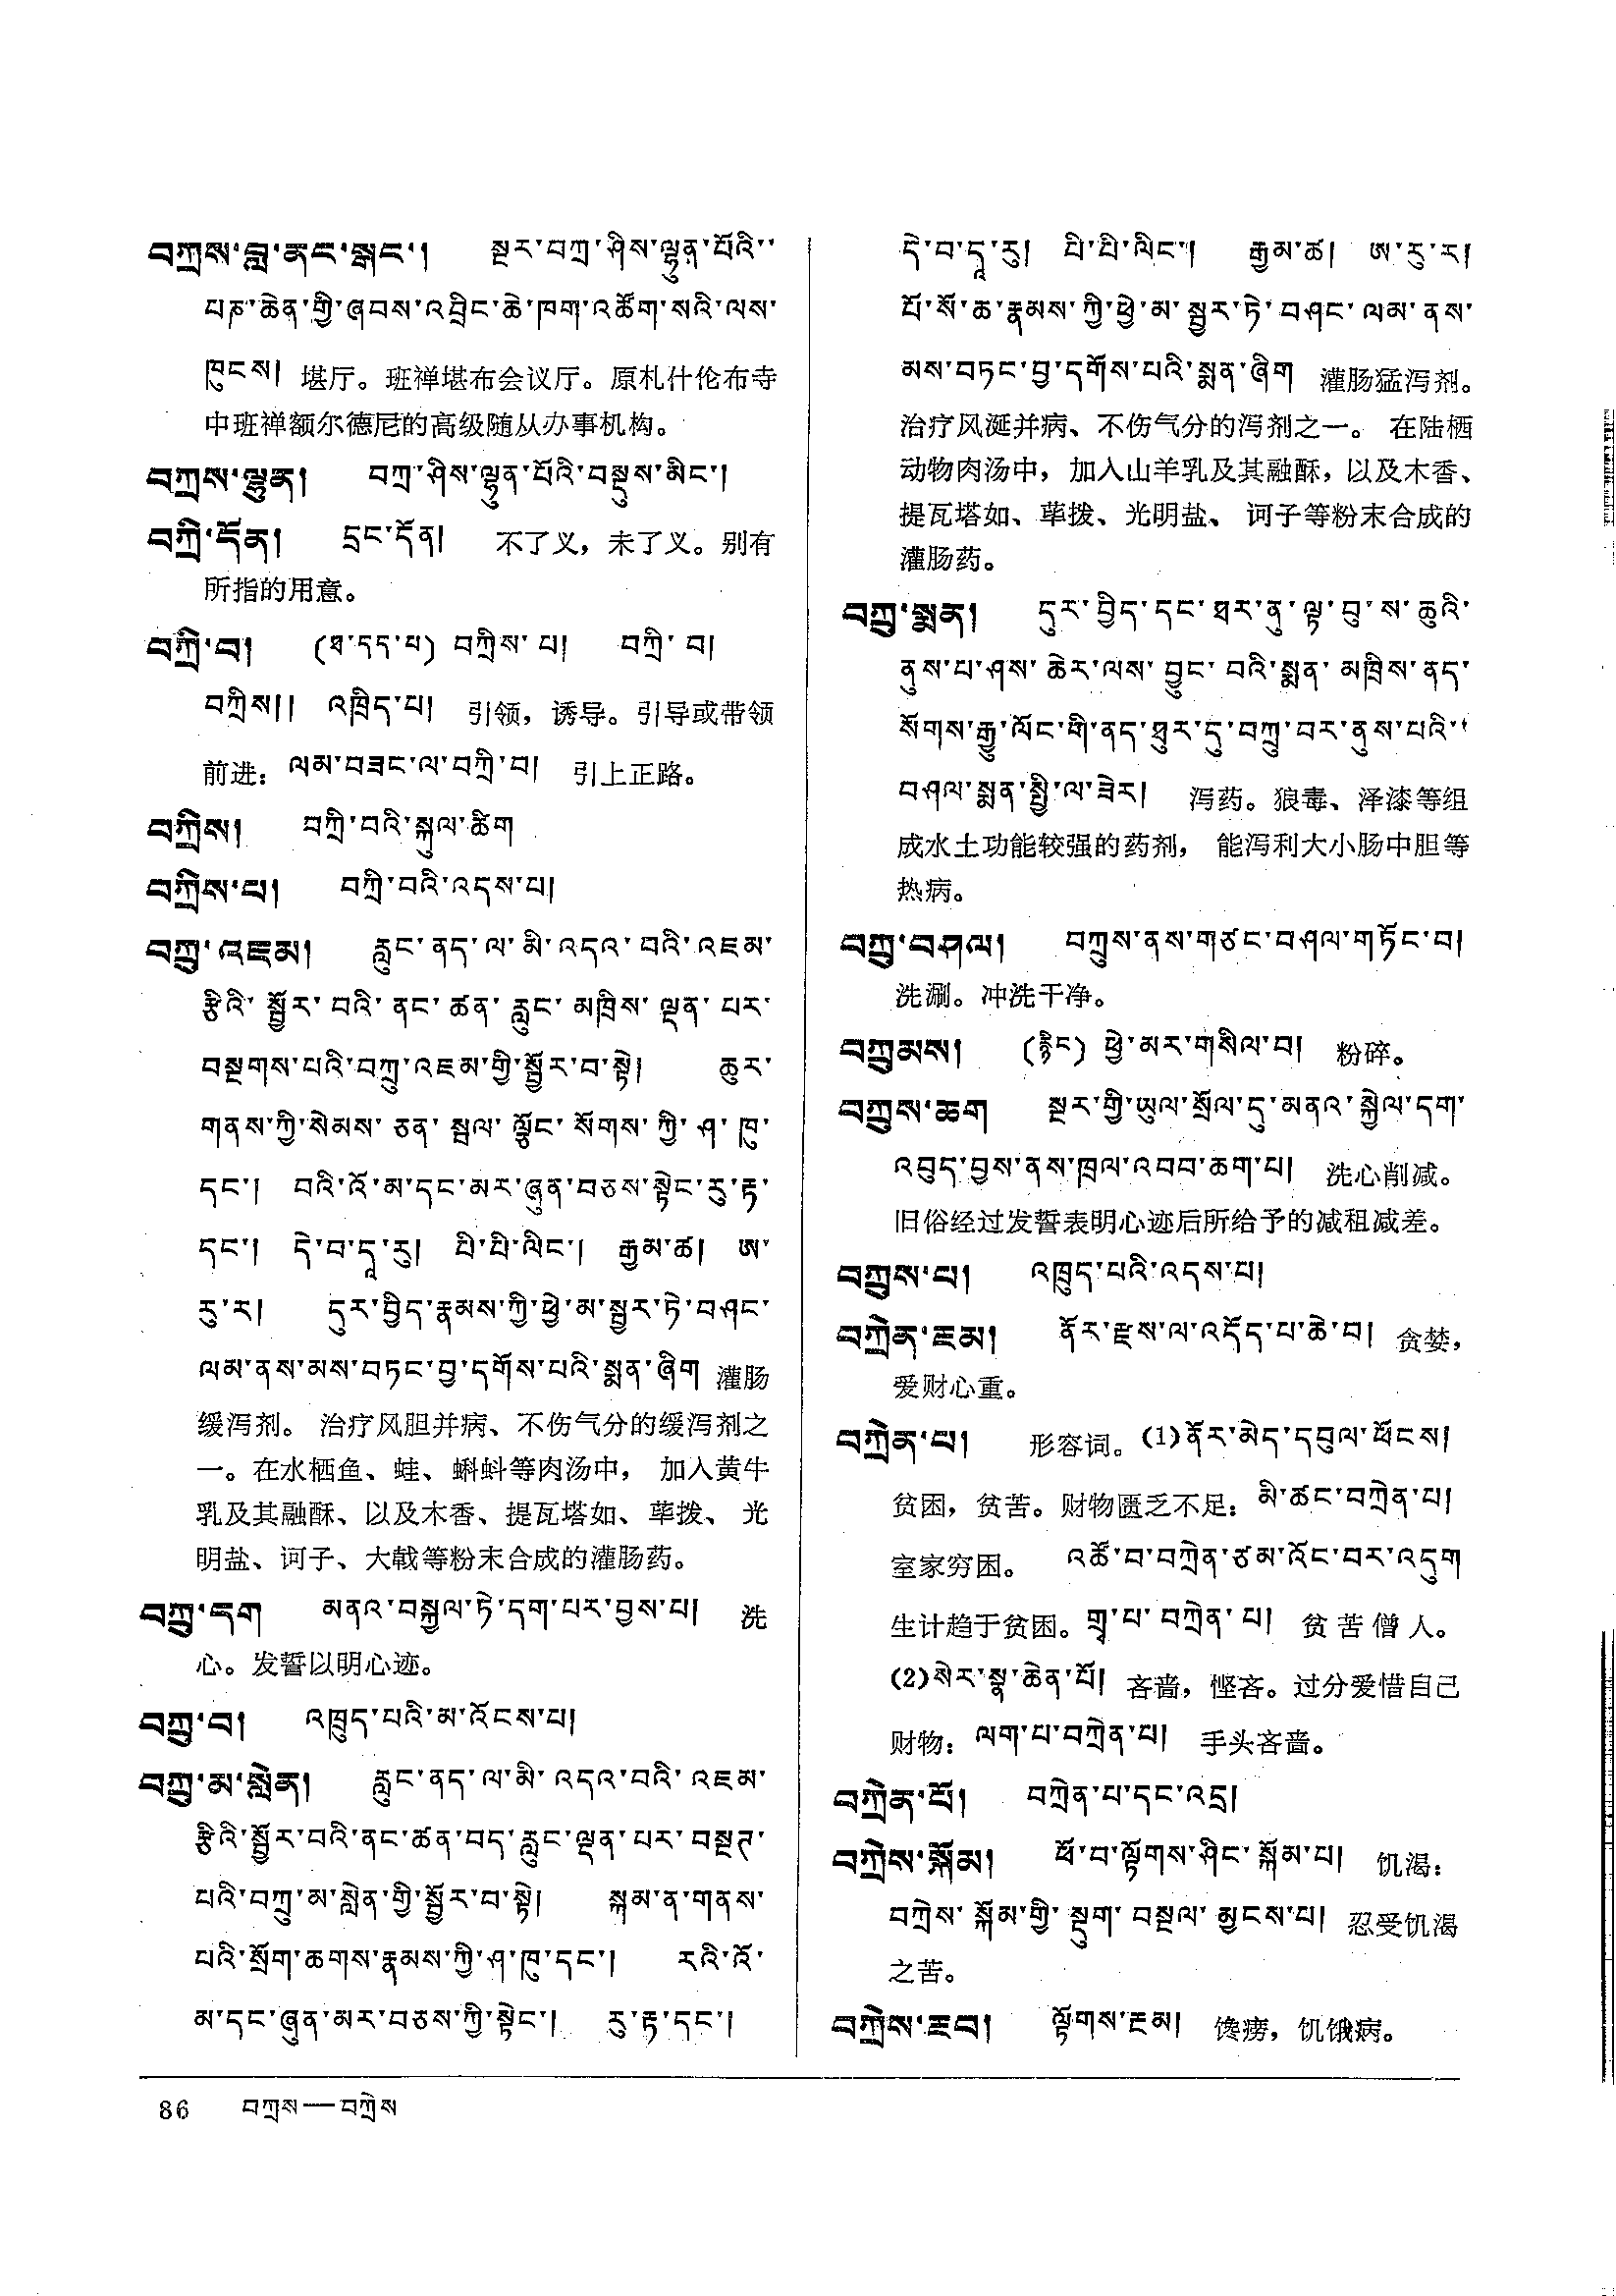 བཀྲས་བླ་ནང་སྒང་། སྔར་བཀྲ་ཤིས་ལྷུན་པོའི་་
པཎ་ཆེན་གྱི་ཞབས་འབྲིང་ཆེ་ཁག་འཚོག་སའི་ལས་
ཁུངས། 堪厅。班禅堪布会议厅。原札什伦布寺
中班禅额尔德尼的高级随从办事机构。
བཀྲས་ལྷུན། བཀྲ་ཤིས་ལྷུན་པོའི་བསྡུས་མིང་།
བཀྲི་དོན། དྲང་དོན། 不了义，未了义。别有
所指的用意。
བཀྲི་བ། (ཐ་དད་པ) བཀྲིས་པ། བཀྲི་བ།
བཀྲིས།། འཁྲིད་པ། 引领，诱导。引导或带领
前进：ལམ་བཟང་ལ་བཀྲི་བ། 引上正路。
བཀྲིས། བཀྲི་བའི་སྐུལ་ཚིག
བཀྲིས་པ། བཀྲི་བའི་འདས་པ།
བཀྲུ་འཇམ། རླུང་ནད་ལ་མི་འདའ་བའི་འཇམ་
རྩིའི་སྦྱོར་བའི་ནང་ཚན་རླུང་མཁྲིས་ལྡན་པར་
བསྔགས་པའི་བཀྲུ་འཇམ་གྱི་སྦྱོར་བ་སྟེ། ཆུར་
གནས་ཀྱི་སེམས་ཅན་སྦལ་ལྕོང་སོགས་ཀྱི་ཤ་ཁུ་
དང་། བའི་འོ་མ་དང་མར་ཞུན་བཅས་སྟེང་རུ་རྟ་
དང་། དེ་བ་དཱ་རུ། པི་པི་ལིང་། རྒྱམ་ཚ། ཨ་
རུ་ར། དུར་བྱིད་རྣམས་ཀྱི་ཕྱེ་མ་སྦྱར་ཏེ་བཤང་
ལམ་ནས་མས་བཏང་བྱ་དགོས་པའི་སྨན་ཞིག 灌肠
缓泻剂。 治疗风胆并病、不伤气分的缓泻剂之
一。在水栖鱼、蛙、蝌蚪等肉汤中， 加入黄牛
乳及其融酥、以及木香、提瓦塔如、荜拨、 光
明盐、诃子、大戟等粉末合成的灌肠药。
བཀྲུ་དག མནའ་བསྐྱལ་ཏེ་དག་པར་བྱས་པ། 洗
心。发誓以明心迹。
བཀྲུ་བ། འཁྲུད་པའི་མ་འོངས་པ།
བཀྲུ་མ་སླེན། རླུང་ནད་ལ་མི་འདའ་བའི་འཇམ་
རྩིའི་སྦྱོར་བའི་ནང་ཚན་བད་རླུང་ལྡན་པར་བསྔཊ་
པའི་བཀྲུ་མ་སླེན་གྱི་སྦྱོར་བ་སྟེ། སྐམ་ན་གནས་
པའི་སྲོག་ཆགས་རྣམས་ཀྱི་ཤ་ཁུ་དང་། རའི་འོ་
མ་དང་ཞུན་མར་བཅས་ཀྱི་སྟེང་། རུ་རྟ་དང་།
དེ་བ་དཱ་རུ། པི་པི་ལིང་། རྒྱམ་ཚ། ཨ་རུ་ར།
པོ་སོ་ཆ་རྣམས་ཀྱི་ཕྱེ་མ་སྦྱར་ཏེ་བཤང་ལམ་ནས་
མས་བཏང་བྱ་དགོས་པའི་སྨན་ཞིག 灌肠猛泻剂。
治疗风涎并病、不伤气分的泻剂之一。 在陆栖
动物肉汤中，加入山羊乳及其融酥，以及木香、
提瓦塔如、荜拨、光明盐、 诃子等粉末合成的
灌肠药。
བཀྲུ་སྨན། དུར་བྱིད་དང་ཐར་ནུ་ལྟ་བུ་ས་ཆུའི་
ནུས་པ་ཤས་ཆེར་ལས་བྱུང་བའི་སྨན་མཁྲིས་ནད་
སོགས་རྒྱུ་ལོང་གི་ནད་ཐུར་དུ་བཀྲུ་བར་ནུས་པའི་་
བཤལ་སྨན་སྤྱི་ལ་ཟེར། 泻药。狼毒、泽漆等组
成水土功能较强的药剂， 能泻利大小肠中胆等
热病。
བཀྲུ་བཤལ། བཀྲུས་ནས་གཙང་བཤལ་གཏོང་བ།
洗涮。冲洗干净。
བཀྲུམས། (རྙིང) ཕྱེ་མར་གསིལ་བ། 粉碎。
བཀྲུས་ཆག སྔར་གྱི་ཡུལ་སྲོལ་དུ་མནའ་སྐྱེལ་དག་
འབུད་བྱས་ནས་ཁྲལ་འབབ་ཆག་པ། 洗心削减。
旧俗经过发誓表明心迹后所给予的减租减差。
བཀྲུས་པ། འཁྲུད་པའི་འདས་པ།
བཀྲེན་ངམ། ནོར་རྫས་ལ་འདོད་པ་ཆེ་བ། 贪婪，
爱财心重。
བཀྲེན་པ། 形容词。(1)ནོར་མེད་དབུལ་ཕོངས།
贫困，贫苦。财物匮乏不足：མི་ཚང་བཀྲེན་པ།
室家穷困。 འཚོ་བ་བཀྲེན་ཙམ་འོང་བར་འདུག
生计趋于贫困。གྲྭ་པ་བཀྲེན་པ། 贫苦僧人。
(2)སེར་སྣ་ཆེན་པོ། 吝啬，悭吝。过分爱惜自己
财物：ལག་པ་བཀྲེན་པ། 手头吝啬。
བཀྲེན་པོ། བཀྲེན་པ་དང་འདྲ།
བཀྲེས་སྐོམ། ཕོ་བ་ལྟོགས་ཤིང་སྐོམ་པ། 饥渴：
བཀྲེས་སྐོམ་གྱི་སྡུག་བསྔལ་མྱངས་པ། 忍受饥渴
之苦。
བཀྲེས་ངབ། ལྟོགས་ངམ། 馋痨，饥饿病。
86 བཀྲས—བཀྲེས